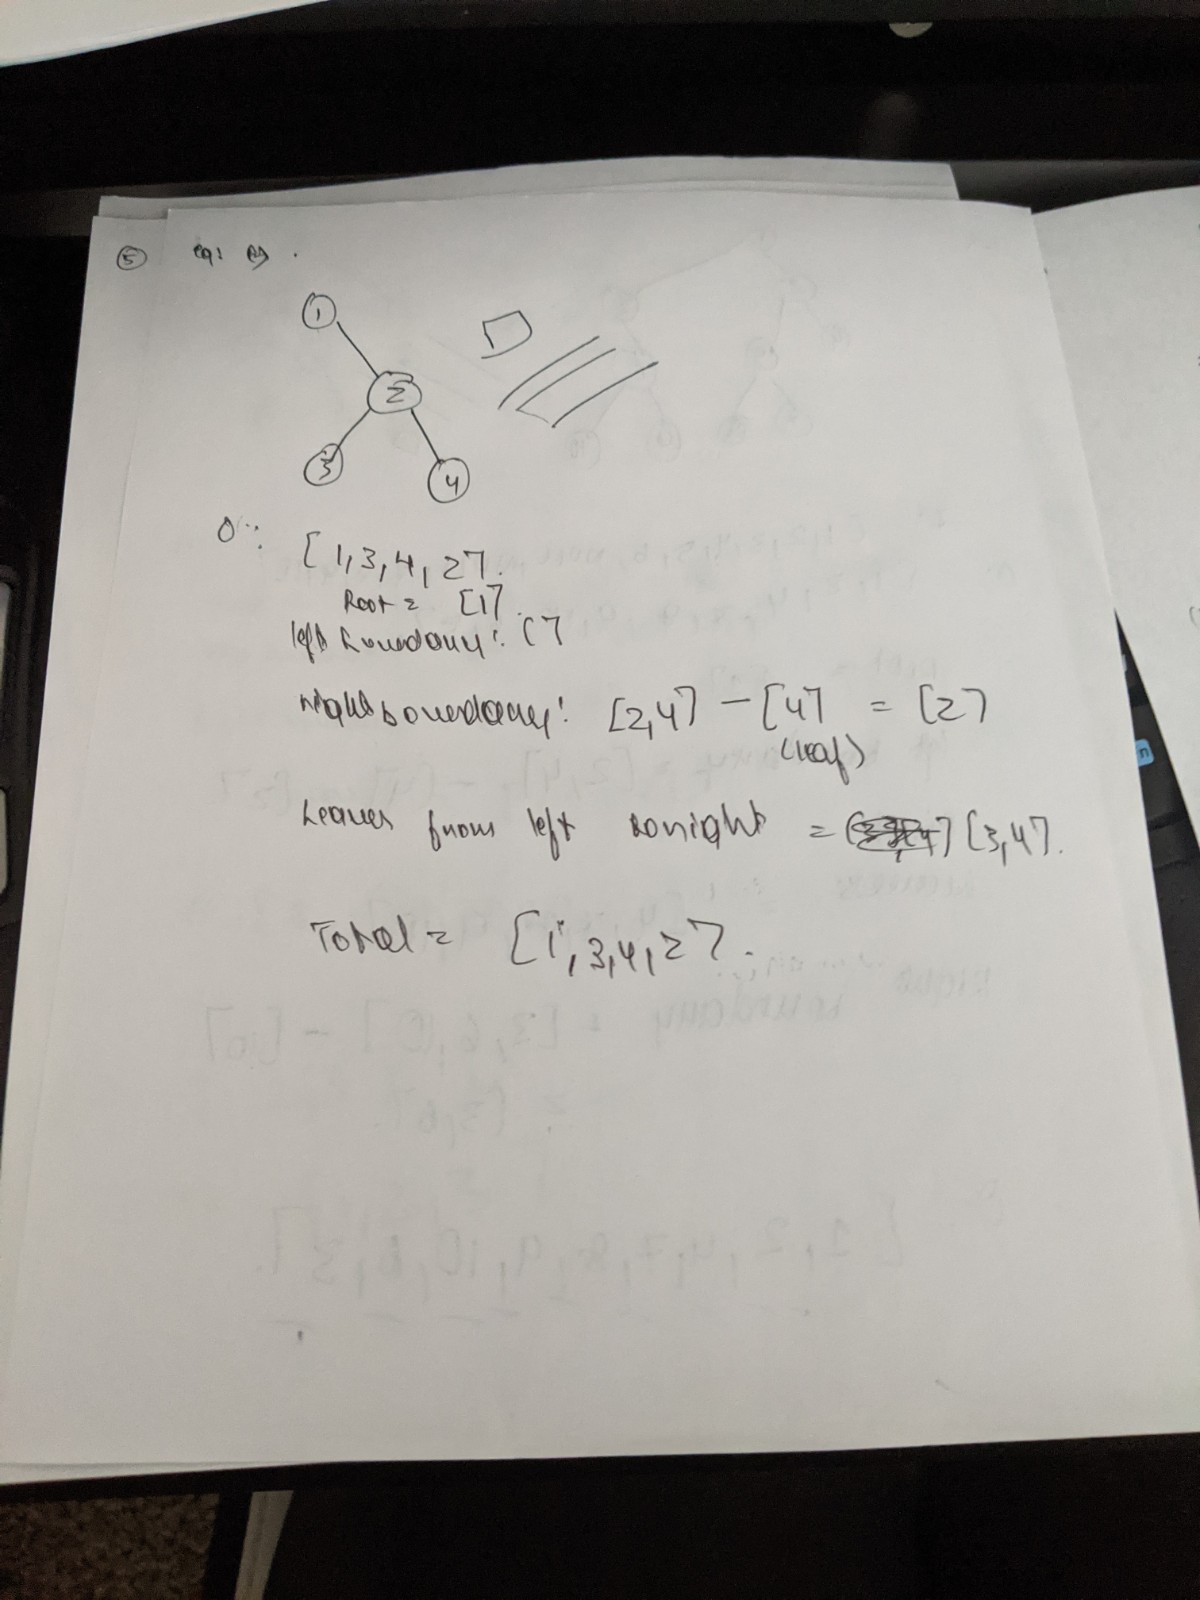 5 eg:
1
2
3
4
O: [1,3,4,2].
Root = [1].
left boundary: []
right boundary: [2,4] - [4] = [2]
(leaf)
Leaves from left to right = [3,4].
Total = [1,3,4,2].